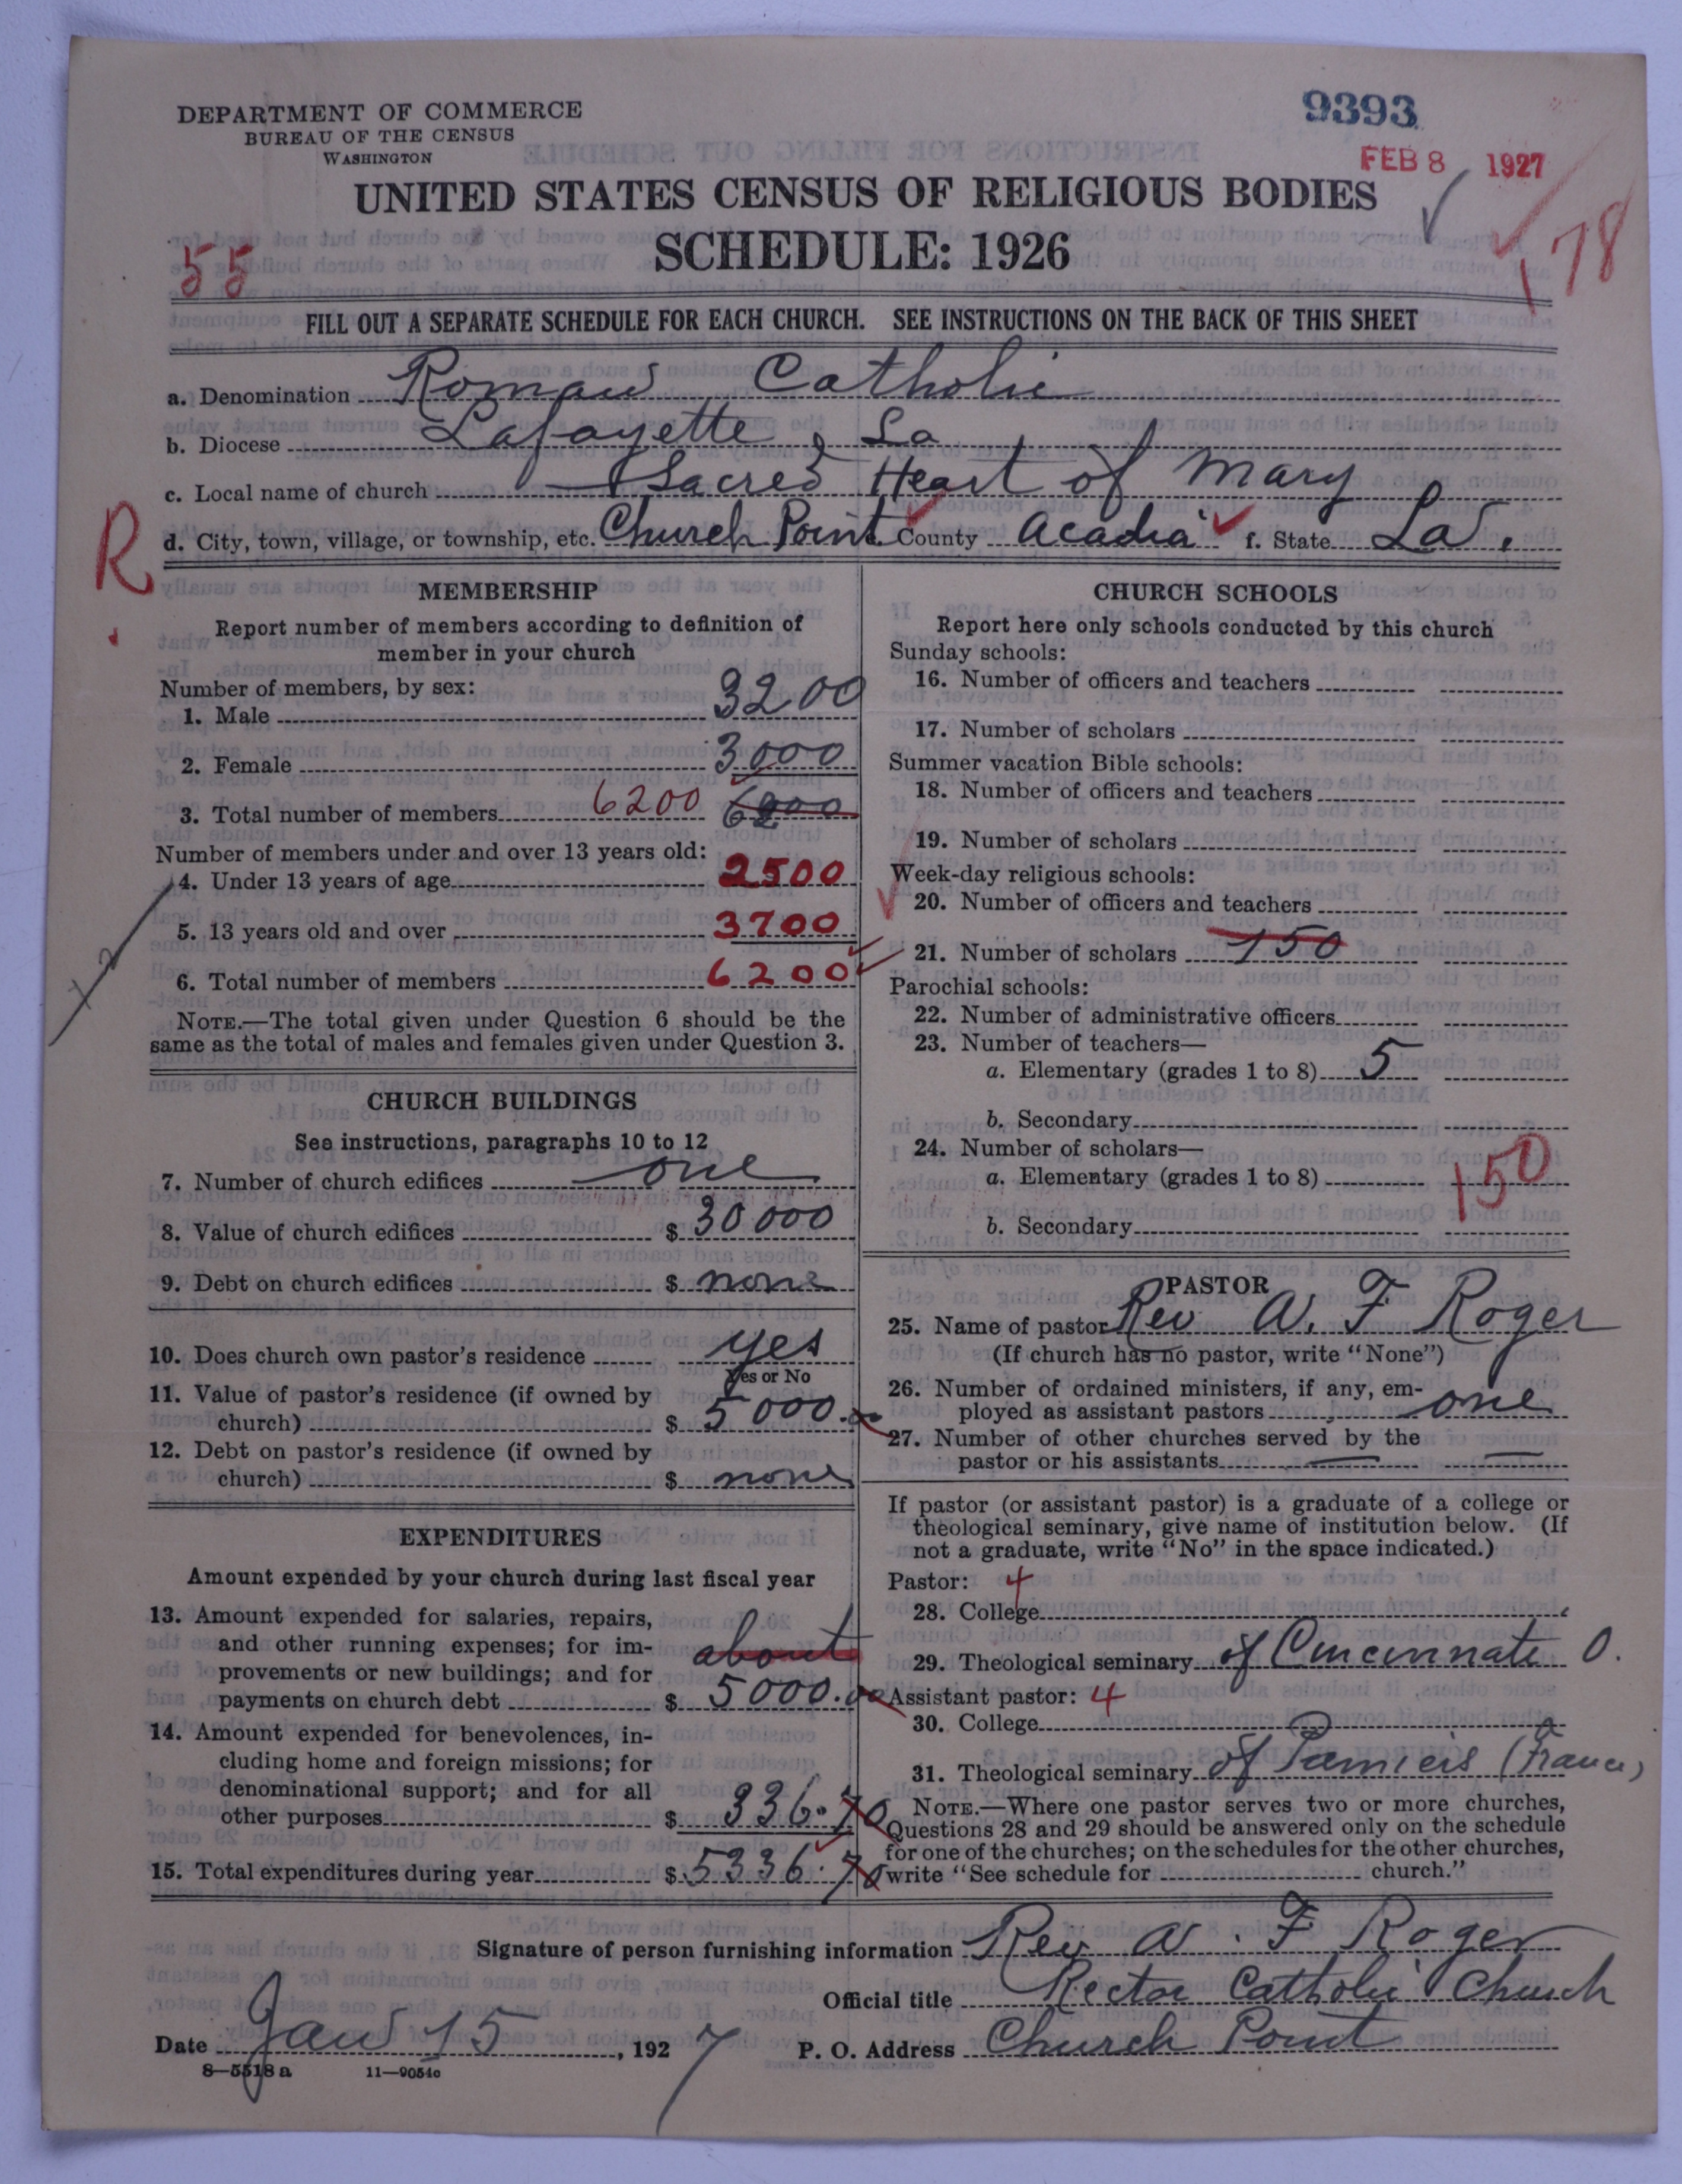 DEPARTMENT OF COMMERCE
BUREAU OF THE CENSUS
WASHINGTON
9393
FEB 8 1927
UNITED STATES CENSUS OF RELIGIOUS BODIES
SCHEDULE: 1926
55
178
FILL OUT A SEPARATE SCHEDULE FOR EACH CHURCH. SEE INSTRUCTIONS ON THE BACK OF THIS SHEET
a. Denomination Roman Catholic
b. Diocese Lafayette, La
c. Local name of church Sacred Heart of Mary
R
d. City, town, village, or township, etc. Church Point County Acadia f. State La.
MEMBERSHIP
Report number of members according to definition of
member in your church
Number of members, by sex:
1. Male 3200
2. Female 3000
3. Total number of members 6200 6200
Number of members under and over 13 years old:
4. Under 13 years of age 2500
5. 13 years old and over 3700
6. Total number of members 6200
NOTE.—The total given under Question 6 should be the
same as the total of males and females given under Question 3.
CHURCH BUILDINGS
See instructions, paragraphs 10 to 12
7. Number of church edifices one
8. Value of church edifices $ 30000
9. Debt on church edifices $ none
10. Does church own pastor's residence yes
Yes or No
11. Value of pastor's residence (if owned by
church) $ 5000.00
12. Debt on pastor's residence (if owned by
church) $ none
EXPENDITURES
Amount expended by your church during last fiscal year
13. Amount expended for salaries, repairs,
and other running expenses; for im-
provements or new buildings; and for
about
payments on church debt $ 5000.00
14. Amount expended for benevolences, in-
cluding home and foreign missions; for
denominational support; and for all
other purposes $ 336.70
15. Total expenditures during year $ 5336.70
CHURCH SCHOOLS
Report here only schools conducted by this church
Sunday schools:
16. Number of officers and teachers
17. Number of scholars
Summer vacation Bible schools:
18. Number of officers and teachers
19. Number of scholars
Week-day religious schools:
20. Number of officers and teachers
21. Number of scholars 150
Parochial schools:
22. Number of administrative officers
23. Number of teachers—
a. Elementary (grades 1 to 8) 5
b. Secondary
24. Number of scholars—
a. Elementary (grades 1 to 8) 150
b. Secondary
PASTOR
25. Name of pastor Rev A. F Roger
(If church has no pastor, write "None")
26. Number of ordained ministers, if any, em-
ployed as assistant pastors one
27. Number of other churches served by the
pastor or his assistants —
If pastor (or assistant pastor) is a graduate of a college or
theological seminary, give name of institution below. (If
not a graduate, write "No" in the space indicated.)
Pastor: 4
28. College
29. Theological seminary of Cincinnate O.
Assistant pastor: 4
30. College
31. Theological seminary of Pamiers (France)
NOTE.—Where one pastor serves two or more churches,
Questions 28 and 29 should be answered only on the schedule
for one of the churches; on the schedules for the other churches,
write "See schedule for church."
Signature of person furnishing information Rev A. F Roger
Official title Rector Catholic Church
Date Jan 15, 1927 P. O. Address Church Point
8—5518 a 11—9051c